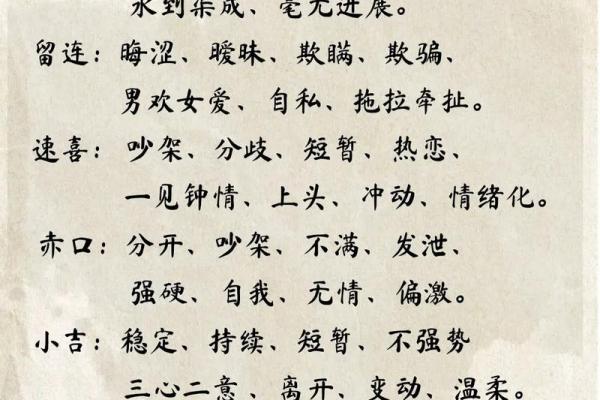 水到渠成、毫无进展。
留连：晦涩、暧昧、欺瞒、欺骗、
男欢女爱、自私、拖拉牵扯。
速喜：吵架、分歧、短暂、热恋、
一见钟情、上头、冲动、情绪化。
赤口：分开、吵架、不满、发泄、
强硬、自我、无情、偏激。
小吉：稳定、持续、短暂、不强势
三心二意、离开、变动、温柔。